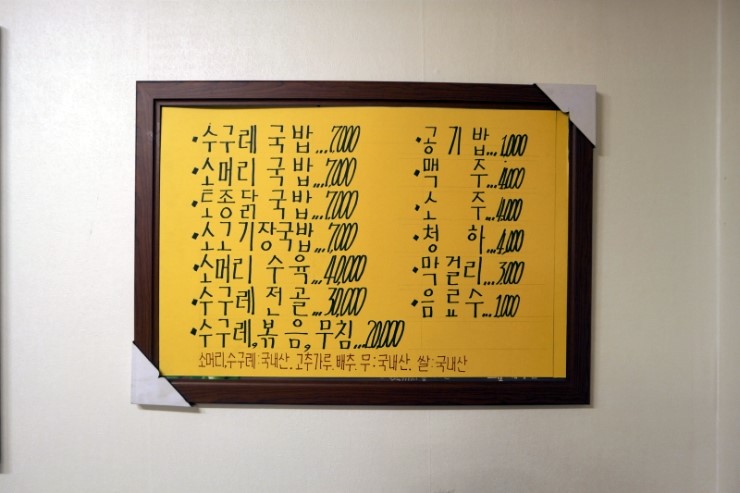 ·수구레 국밥...7,000
·소머리 국밥...7,000
·토종닭 국밥...7,000
·소고기장국밥...7,000
·소머리 수육...40,000
·수구레 전골...30,000
·수구레,볶음,무침...20,000
·공기밥...1,000
·맥주...4,000
·소주...4,000
·청하...4,000
·막걸리...3,000
·음료수...1,000
소머리,수구레:국내산. 고추가루.배추.무:국내산. 쌀:국내산